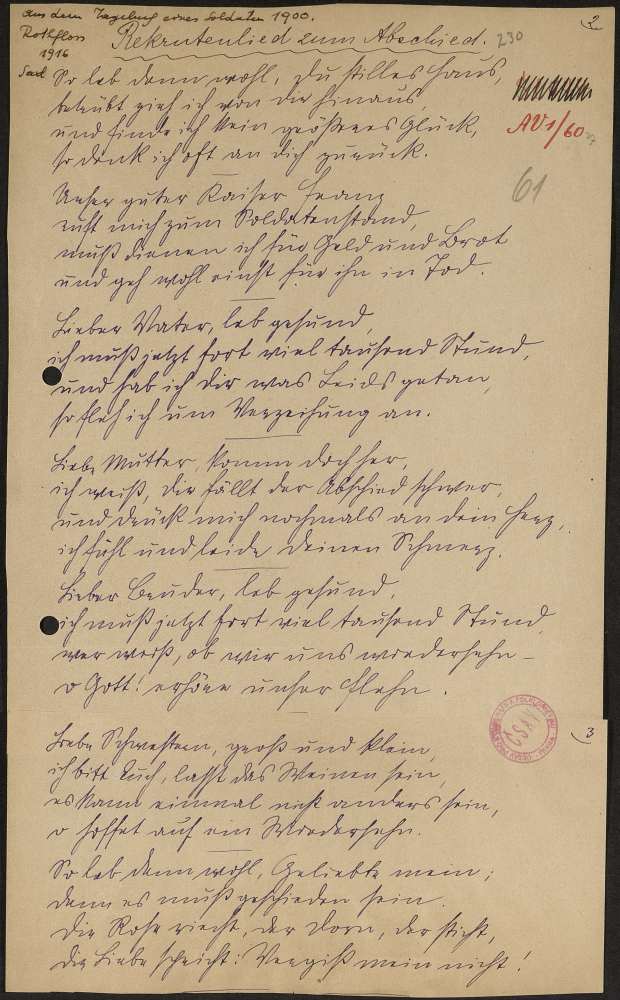 aus dem Tagebuch eines Soldaten 1900.
Rothfloss
1916
2
Rekrutenlied zum Abschied.
230
So leb denn wohl, du stilles Haus,
betrübt zieh ich von dir hinaus,
und finde ich kein größeres Glück,
so denk ich oft an dich zurück.
AV1/60
61
Unser guter Kaiser Franz
ruft mich zum Soldatenstand,
muß dienen ich für Geld und Brot
und geh wohl einst für ihn in Tod.
Lieber Vater, leb gesund,
ich muß jetzt fort viel tausend Stund,
und hab ich dir was Leids getan,
so fleh ich um Verzeihung an.
Liebe Mutter, komm doch her,
ich weiß, dir fällt der Abschied schwer,
und drück mich nochmals an dein Herz,
ich fühl und leide deinen Schmerz.
Lieber Bruder, leb gesund,
ich muß jetzt fort viel tausend Stund
wer weiß, ob wir uns wiedersehn –
o Gott! erhöre unser Flehn.
3
Liebe Schwestern, groß und klein,
ich bitt Euch, lasst das Weinen sein,
es kann einmal nicht anders sein,
o hoffet auf ein Wiedersehn.
So leb denn wohl, Geliebte mein;
denn es muß geschieden sein.
Die Rose riecht, der Dorn, der sticht,
die Liebe spricht: Vergiß mein nicht!